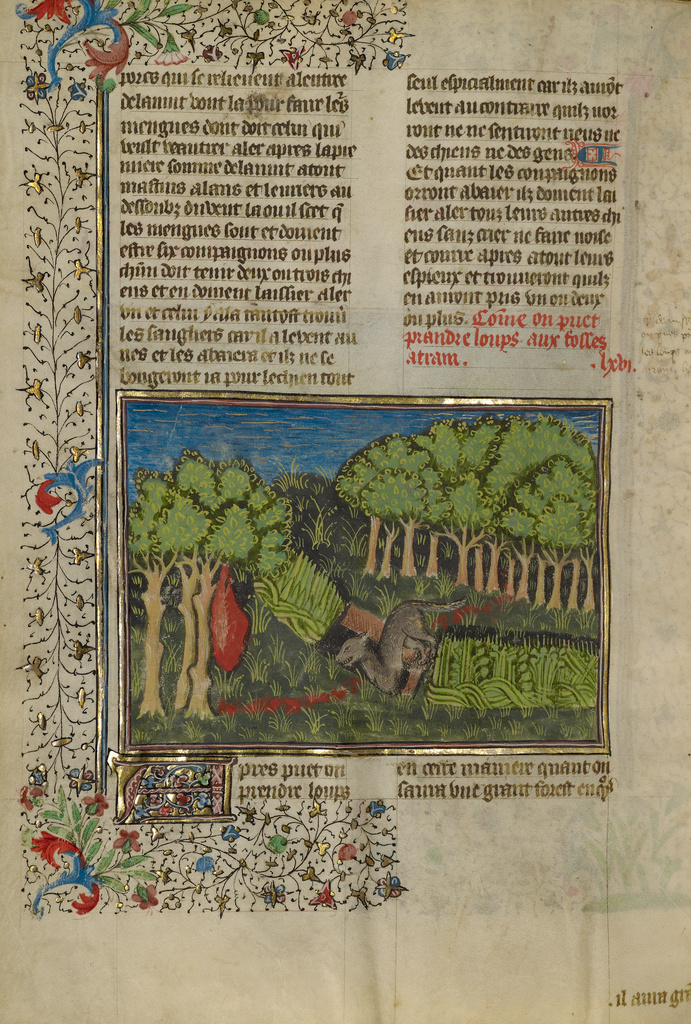 porcs qui se relieuent a leutree
de la nuit vont la pour faire les
mengues dont doit celui qui
veult veautrer aler apres la pre
miere somme de la nuit atout
mastins alans et leuriers au
dessoubz du vent la ou il scet q̄
les mengues sont et doiuent
estre six compaignons ou plus
chūn doit tenir deux ou trois chi
ens et en doiuent laissier aler
vn et celui q̄ ala tantost trouū
les sangliers car il a leuent au
ues et les abaiera et ilz ne se
bougeront ia pour le chien tout
seul especialment car ilz aurōt
le vent au contraire quilz nor
ront ne ne sentiront neus ne
des chiens ne des gens
Et quant les compaignons
orront abaier ilz doiuent lai
sier aler touz leurs autres chi
ens sanz crier ne faire noise
et courre apres atout leurs
espieux et trouueront quilz
en auront pris vn ou deux
ou plus. Cōme on puet
prandre loups aux fosses
atram. .lxvi.
Apres puet on
prendre loups
en ceste maniere quant on
saura vne grant forest
. il aura grā